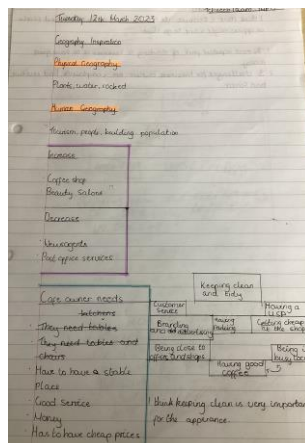 Tuesday 12th March 2023
Geography Inspiration
Physical Geography
Plants, water, rocked
Human Geography
Tourism, people, building, population
Increase
Coffee shop
Beauty Salons
Decrease
Newsagents
Post office services
Cafe owner needs
They need tables
They need tables and
chairs
Have to have a stable
place
Good service
Money
Has to have cheap prices
Keeping clean
and tidy
Customer
Service
Having a
USP
Branding
and advertising
Having
parking
Getting cheap
Being close to
offices and shops
Having good
coffee
Being in
busy
I think keeping clean is very important
for the apperance.